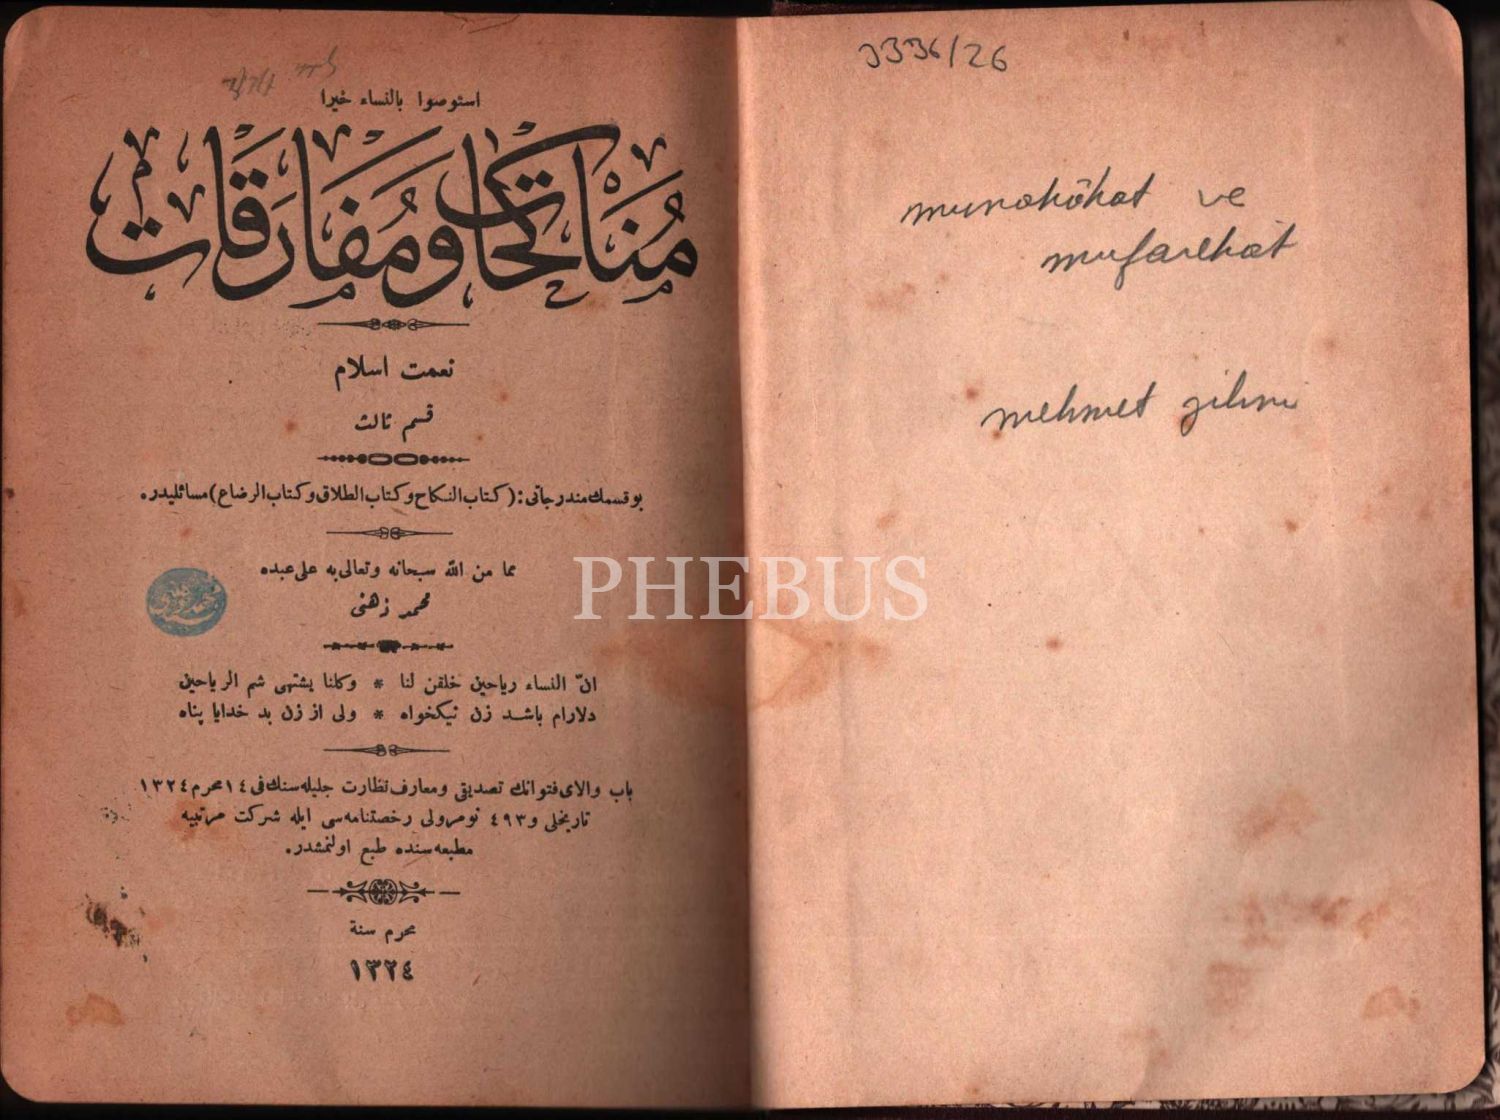 استوصوا بالنساء خيرا
مُنَاكَحَات وَمُفَارَقَات
نعمت اسلام
قسم ثالث
بو قسمك مندرجاتى : (كتاب النكاح وكتاب الطلاق وكتاب الرضاع) مسائليدر.
مما من الله سبحانه وتعالى به على عبده
محمد ذهنى
انّ النساء رياحين خلقن لنا * وكلنا يشتهى شم الرياحين
دلارام باشد زن نيكخواه * ولى از زن بد خدايا پناه
باب والاى فتوانك تصديقى ومعارف نظارت جليله سنك فى ١٤ محرم ١٣٢٤
تاريخلى و ٤٩٣ نومرولى رخصتنامه سى ايله شركت مرتبيه
مطبعه سنده طبع اولنمشدر.
محرم سنة
١٣٢٤
3336/26
munakâhat ve
mufarekat
mehmet zihni
PHEBUS